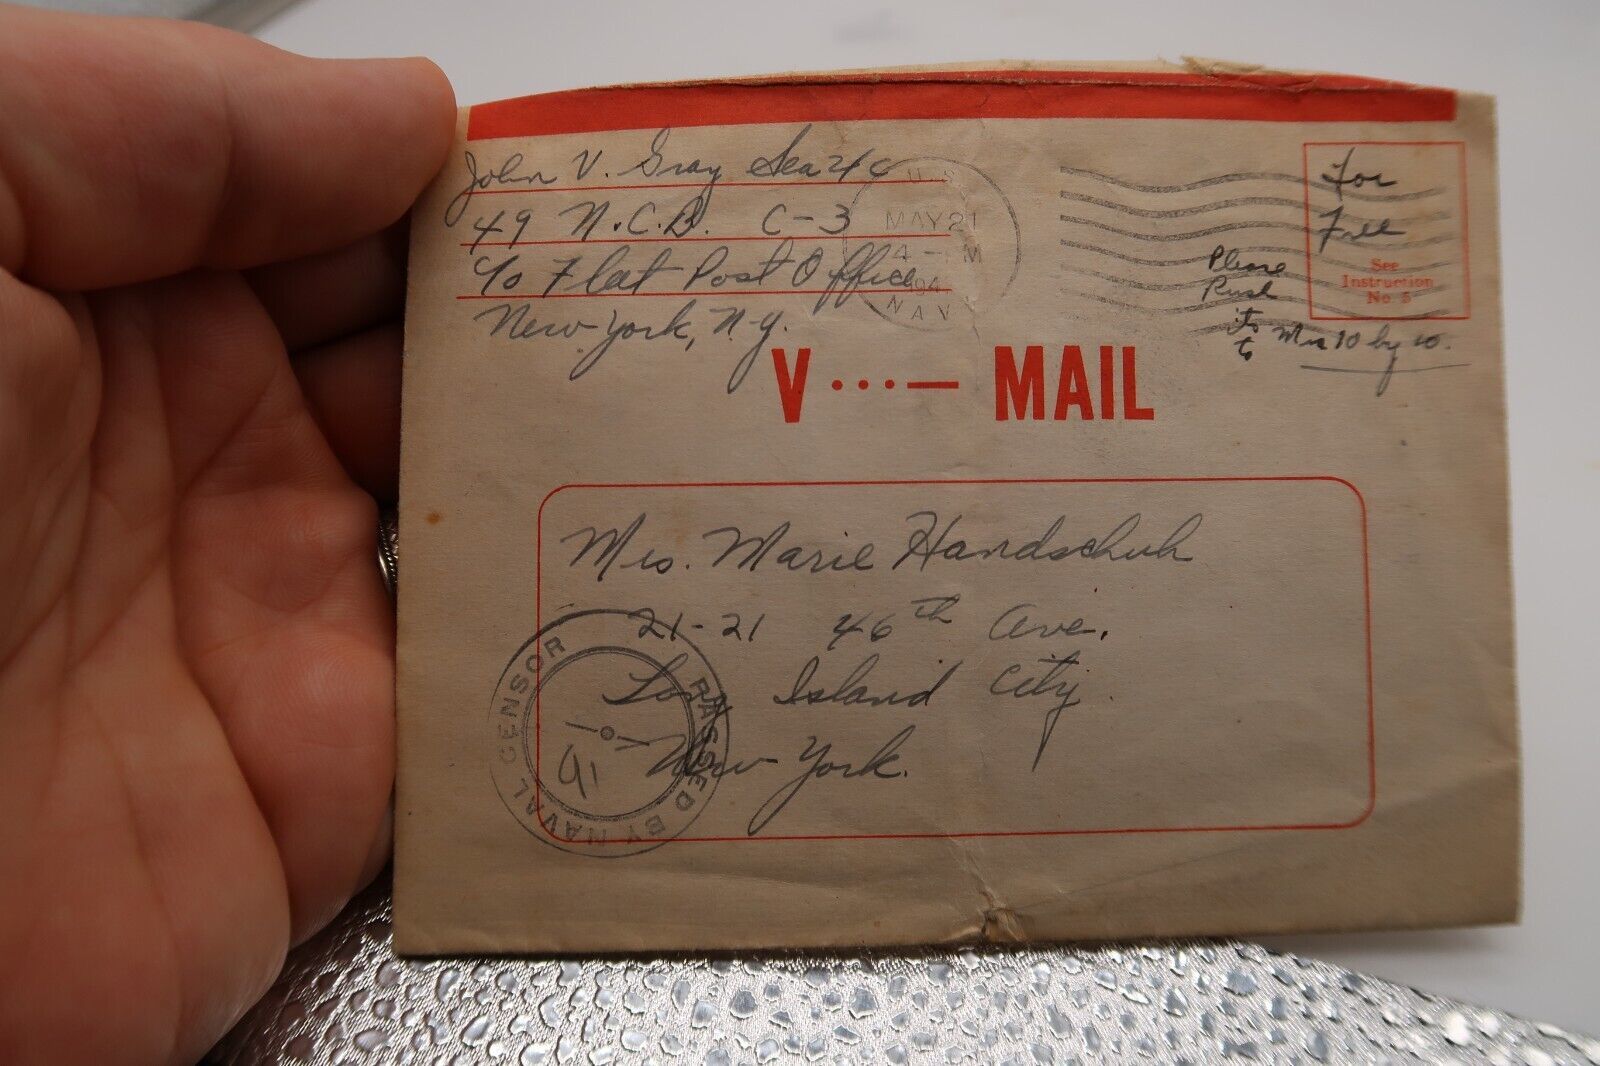 John V. Gray Sea 2/c
49 N.C.B. C-3
c/o Fleet Post Office
New York, N.Y.
U.S.
MAY 21
4 - PM
194
NAVY
For
Free
See
Instruction
No 5
Please
Rush
it
to Mrs 10 by 10.
V ···— MAIL
Mrs. Marie Handschuh
21-21 46th Ave.
Long Island City
New York.
PASSED BY NAVAL CENSOR